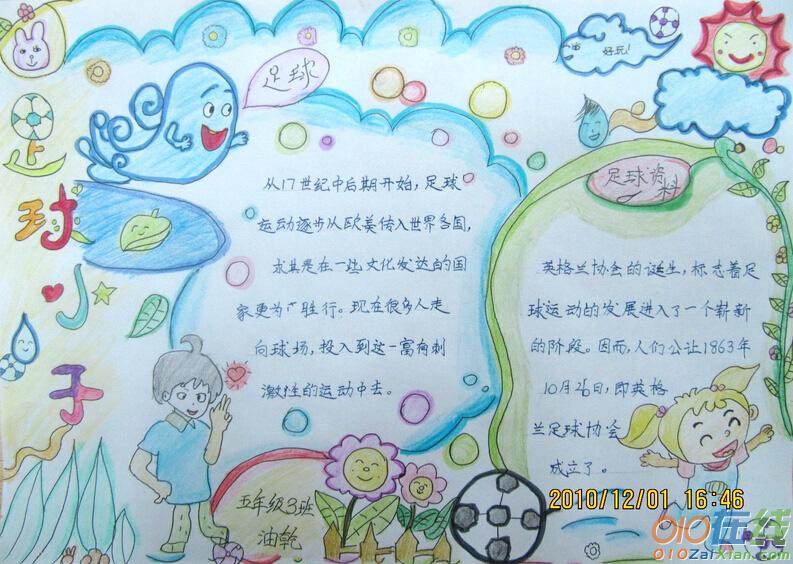 足球
好玩!
足球小子
从17世纪中后期开始，足球
运动逐步从欧美传入世界各国，
求其是在一些文化发达的国
家更为广胜行。现在很多人走
向球场，投入到这一富有刺
激性的运动中去。
足球资料
英格兰协会的诞生，标志着足
球运动的发展进入了一个崭新
的阶段。因而，人们公让1863年
10月26日，即英格
兰足球协会
成立了。
五年级3班
油乾
2010/12/01 16:46
010在线
010ZaiXian.com